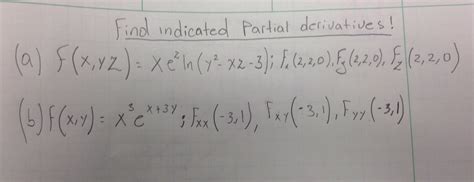 Find indicated Partial derivatives!
(a) f(x,yz) = xe^z ln(y²-xz-3); fₓ(2,2,0), Fy(2,2,0), Fz(2,2,0)
(b) f(x,y) = x³e^(x+3y); Fxx(-3,1), Fxy(-3,1), Fyy(-3,1)